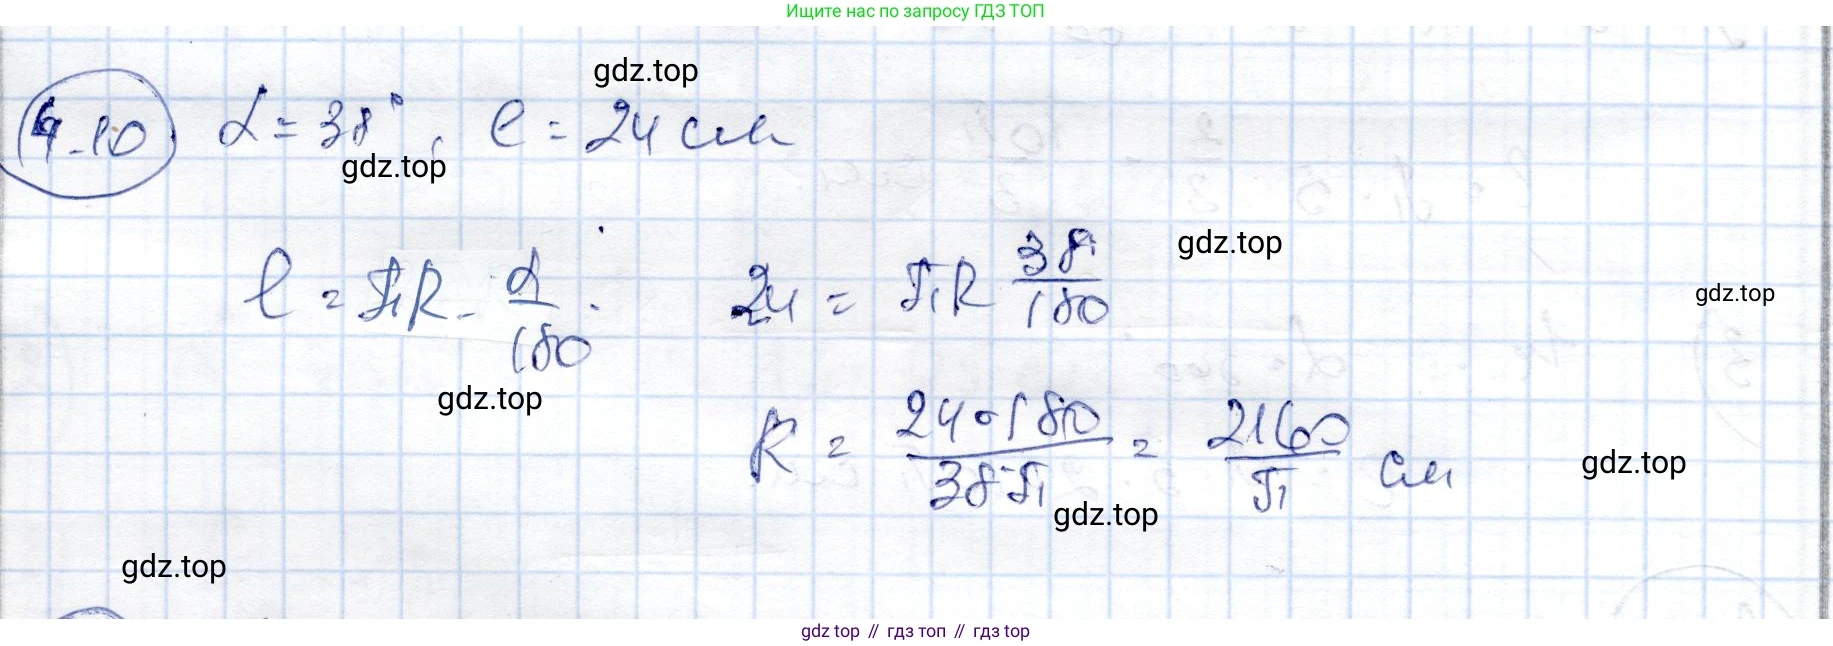 Ищите нас по запросу ГДЗ ТОП
gdz.top
9.10 α = 38°, l = 24 см
gdz.top
l = πR · α/180; 24 = πR 38/180
gdz.top
gdz.top
gdz.top
R = 24·180/38·π = 2160/π см
gdz.top
gdz.top
gdz.top
gdz top // гдз топ // гдз top